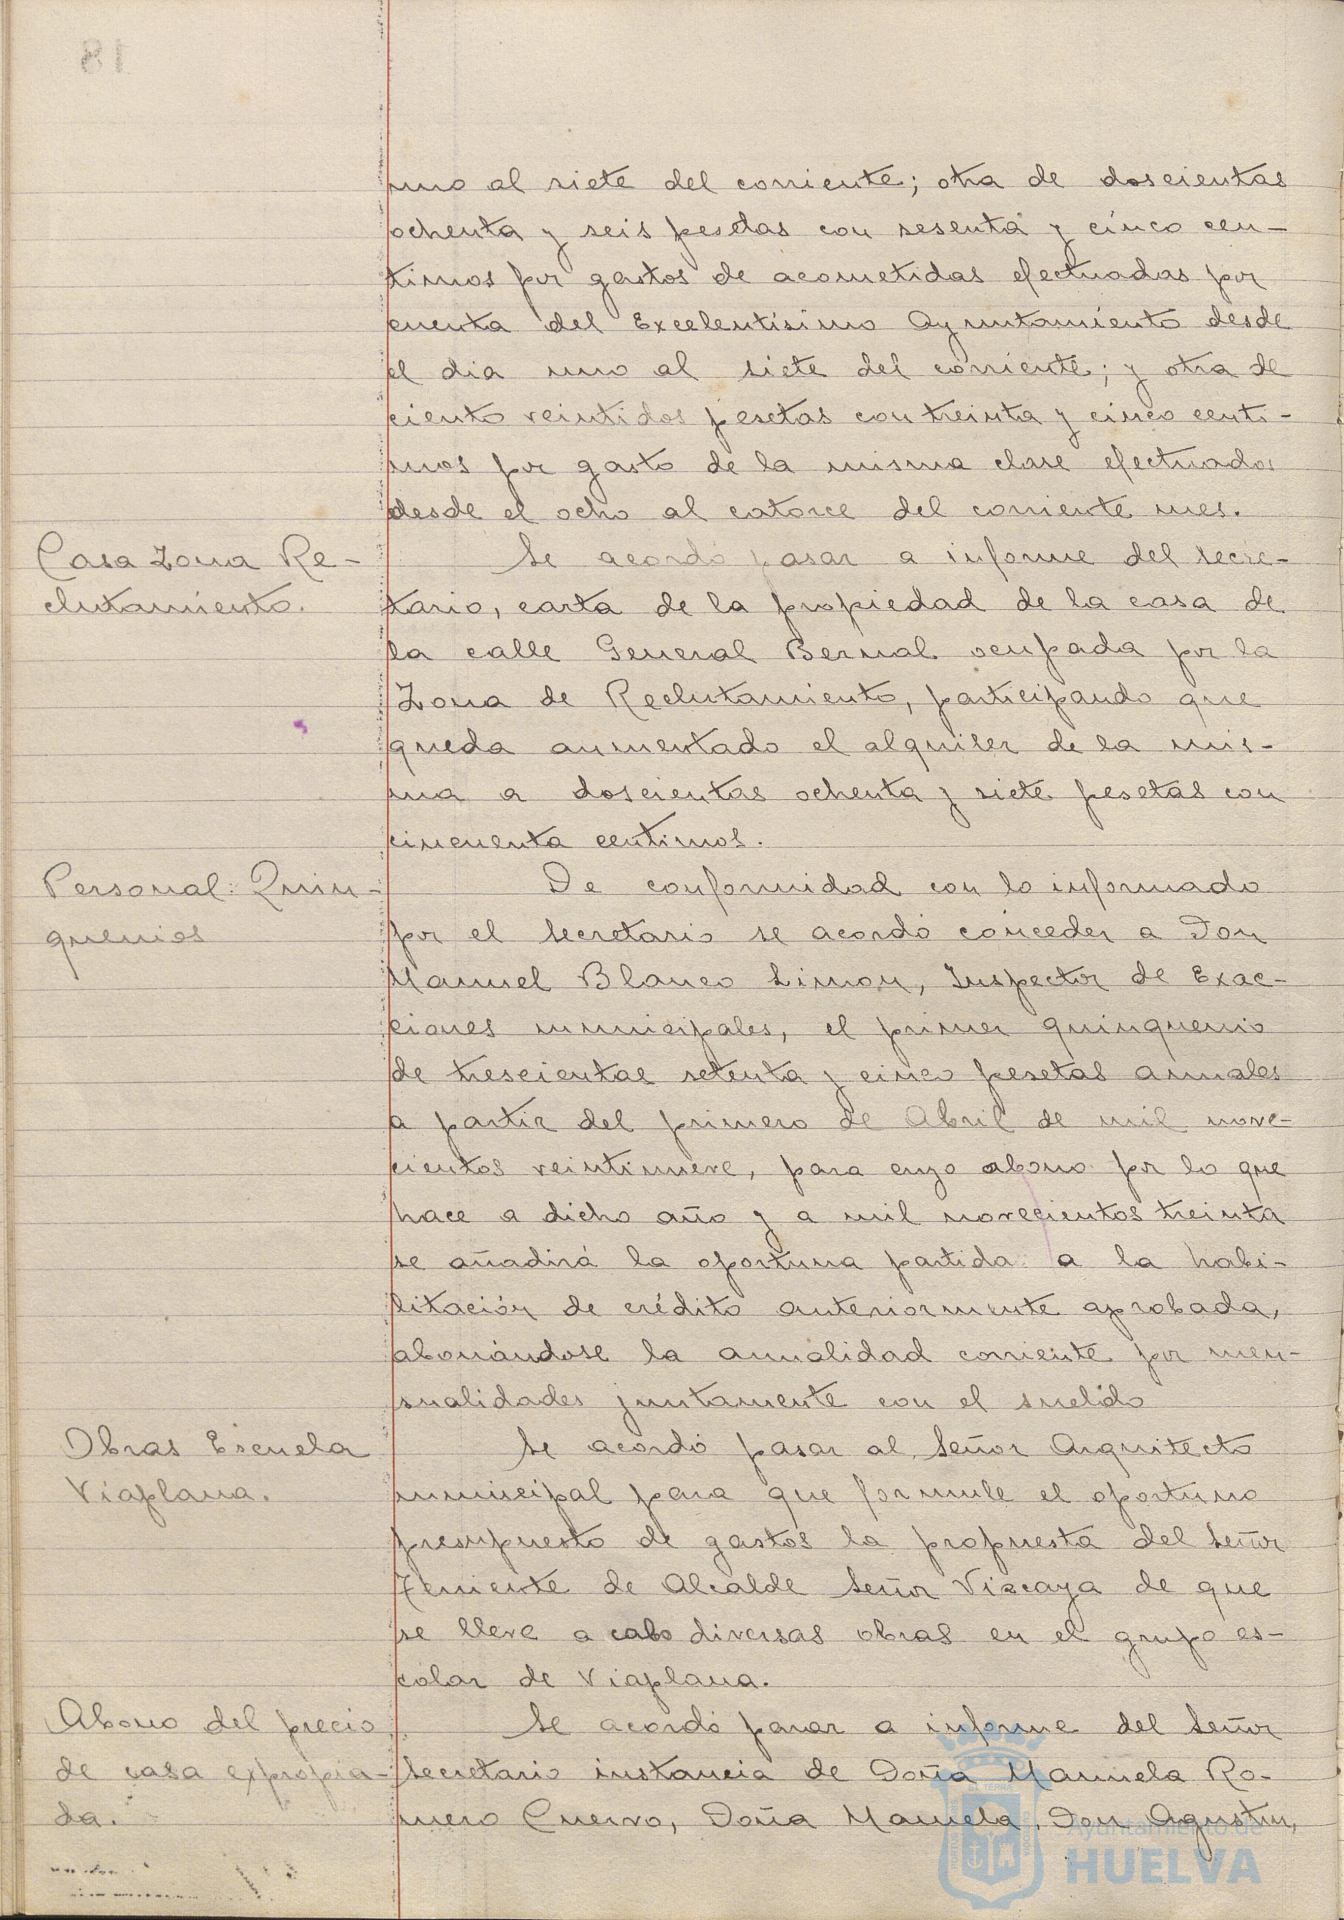 uno al siete del corriente; otra de doscientas
ochenta y seis pesetas con sesenta y cinco cen-
timos por gastos de acometidas efectuadas por
cuenta del Excelentísimo Ayuntamiento desde
el dia uno al siete del corriente; y otra de
ciento veintidos pesetas con treinta y cinco centi-
mos por gasto de la misma clase efectuados
desde el ocho al catorce del corriente mes.
Casa Zona Re-
clutamiento.
Se acordó pasar a informe del secre-
tario, carta de la propiedad de la casa de
la calle General Bernal ocupada por la
Zona de Reclutamiento, participando que
queda aumentado el alquiler de la mis-
ma a doscientas ochenta y siete pesetas con
cincuenta centimos.
Personal: Quin-
quenios
De conformidad con lo informado
por el secretario se acordó conceder a Don
Manuel Blanco Limon, Inspector de Exac-
ciones municipales, el primer quinquenio
de trescientas setenta y cinco pesetas anuales
a partir del primero de Abril de mil nove-
cientos veintinueve, para cuyo abono por lo que
hace a dicho año y a mil novecientos treinta
se añadirá la oportuna partida a la habi-
litación de crédito anteriormente aprobada,
abonándose la anualidad corriente por men-
sualidades juntamente con el sueldo
Obras Escuela
Viaplana.
Se acordó pasar al Señor Arquitecto
municipal para que formule el oportuno
presupuesto de gastos la propuesta del Señor
Teniente de Alcalde Señor Vizcaya de que
se lleve a cabo diversas obras en el grupo es-
colar de Viaplana.
Abono del precio
de casa expropia-
da.
Se acordó pasar a informe del Señor
Secretario instancia de Doña Manuela Ro-
mero Cuervo, Doña Manuela, Don Agustin,
Ayuntamiento de
HUELVA
18